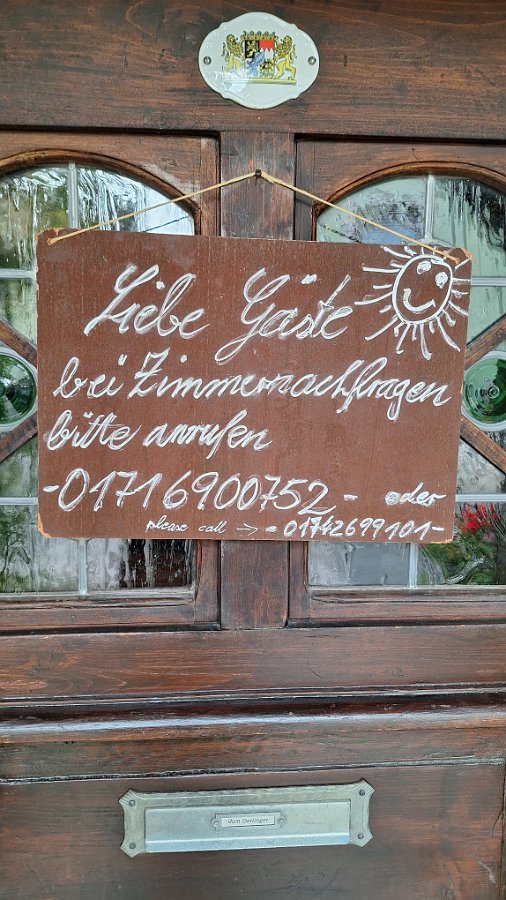 Liebe Gäste
bei Zimmernachfragen
bitte anrufen
-01716900752- oder
please call → -01742699101-
Fam Oerlinger